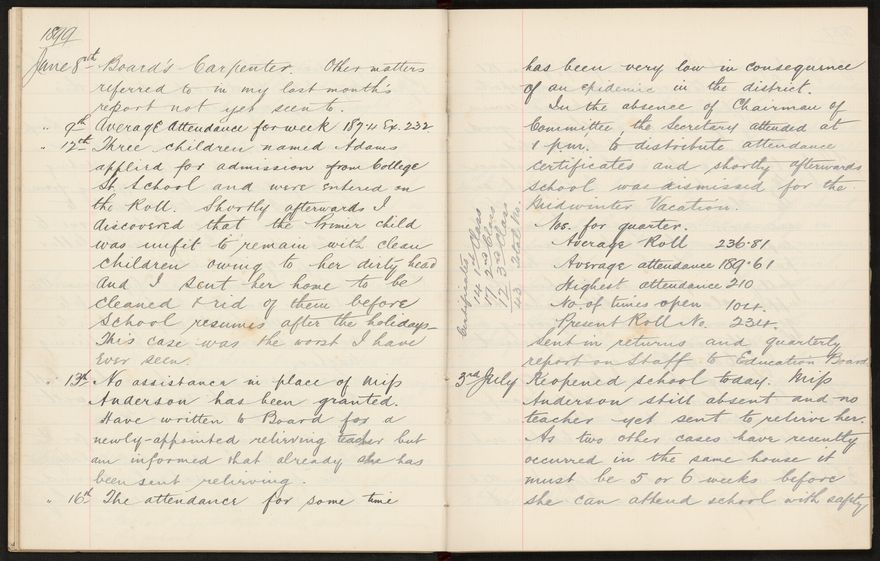 1899
June 8th Board's Carpenter. Other matters
referred to in my last month's
report not yet seen to.
" 9th Average Attendance for week 189.4 Ex. 232
" 12th Three children named Adams
applied for admission from College
St School and were entered on
the Roll. Shortly afterwards I
discovered that the Primer child
was unfit to remain with clean
children owing to her dirty head
and I sent her home to be
cleaned & rid of them before
School resumes after the holidays—
This case was the worst I have
ever seen.
" 13th No assistance in place of Miss
Anderson has been granted.
Have written to Board for a
newly-appointed relieving teacher but
am informed that already she has
been sent relieving.
" 16th The attendance for some time
has been very low in consequence
of an epidemic in the district.
In the absence of Chairman of
Committee, the Secretary attended at
1 p.m. to distribute attendance
certificates and shortly afterwards
school was dismissed for the
Midwinter Vacation.
Nos. for quarter.
Average Roll 236.81
Average attendance 189.61
Highest attendance 210
No. of times open 104.
Present Roll No. 234.
Certificates
14 1st Class
17 2nd Class
12 3rd Class
43 Total No.
Sent in returns and quarterly
report on Staff to Education Board
3rd July Reopened school today. Miss
Anderson still absent and no
teacher yet sent to relieve her.
As two other cases have recently
occurred in the same house it
must be 5 or 6 weeks before
she can attend school with safety